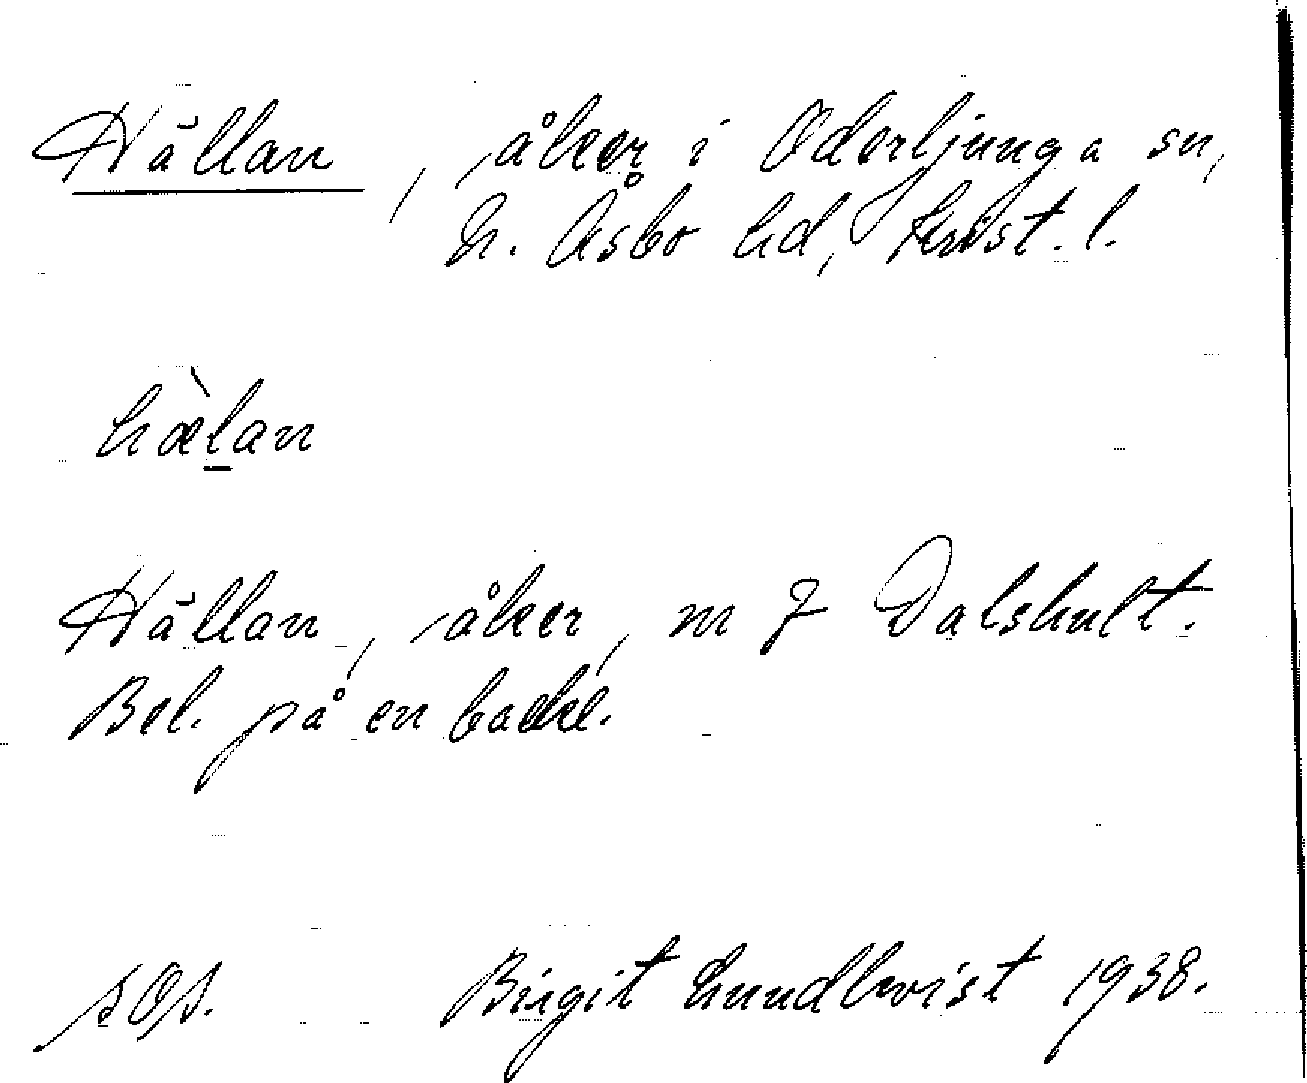 Hällan, åker i Oderljunga sn,
N. Åsbo hd, Krist. l.
hæ̀l̲an
Hällan, åker, m J Dalshult.
Bel. på en backe.
s Os. Birgit Lundkvist 1938.